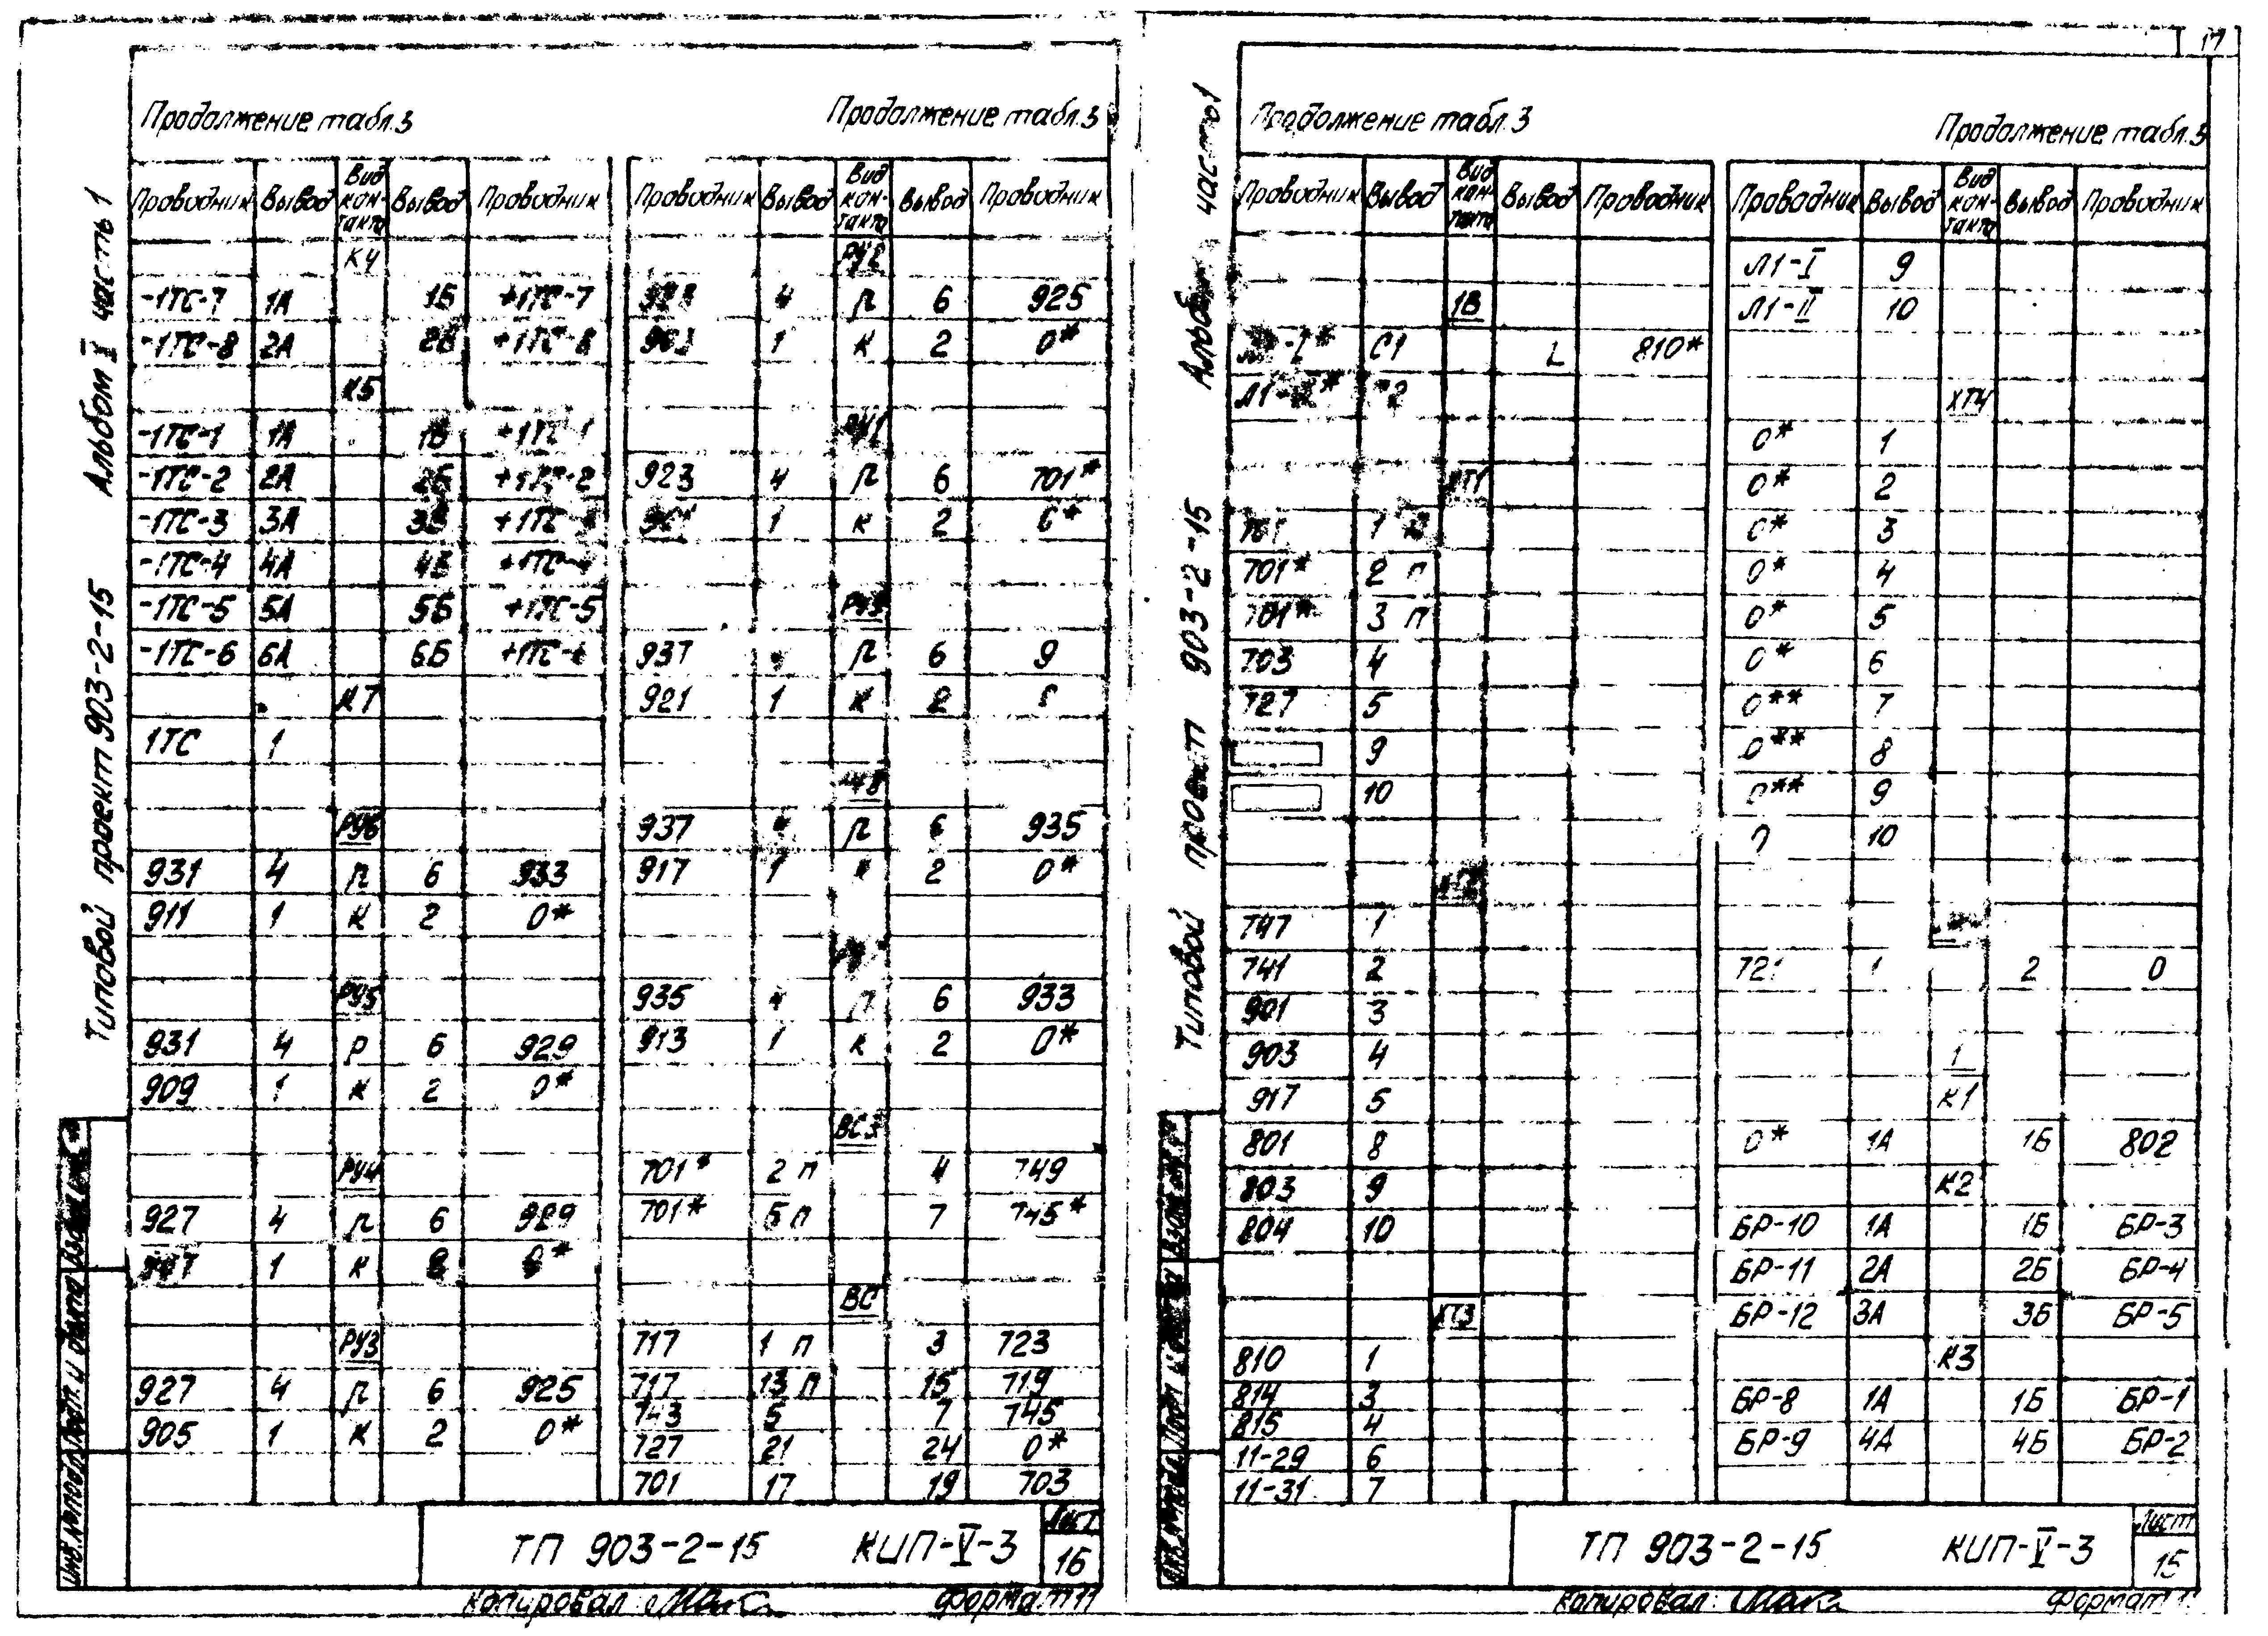 17
Типовой проект 903-2-15 Альбом V часть 1
Продолжение табл.3
Проводник Вывод Вид кон-такта Вывод Проводник
К4
-1ТС-7 1А 1Б +1ТС-7
-1ТС-8 2А 2Б +1ТС-8
К5
-1ТС-1 1А 1Б +1ТС-1
-1ТС-2 2А 2Б +1ТС-2
-1ТС-3 3А 3Б +1ТС-
-1ТС-4 4А 4Б +1ТС-4
-1ТС-5 5А 5Б +1ТС-5
-1ТС-6 6А 6Б +1ТС-6
К7
1ТС 1
РУ6
931 4 П 6 933
911 1 К 2 0*
РУ5
931 4 Р 6 929
909 1 К 2 0*
РУ4
927 4 П 6 929
1 К 0*
РУ3
927 4 П 6 925
905 1 К 2 0*
Продолжение табл.3
Проводник Вывод Вид кон-такта Вывод Проводник
РУ2
923 4 П 6 925
1 К 2 0*
РУ1
923 4 П 6 701*
1 К 2 0*
937 П 6 9
921 1 К 2
937 П 6 935
917 1 2 0*
935 4 П 6 933
913 1 К 2 0*
ВС3
701* 2 П 4 749
701* 5 П 7 745*
ВС
717 1 П 3 723
717 13 П 15 719
743 5 7 745
727 21 24 0*
701 17 19 703
ТП 903-2-15 КИП-V-3
Лист
16
Инв.№подл. Подп. и дата Взам инв.№
Копировал
Формат 11
Типовой проект 903-2-15 Альбом часть 1
Продолжение табл.3
Проводник Вывод Вид кон-такта Вывод Проводник
1В
С1 L 810*
Л1-
ХТ1
701 1 П
701* 2 П
701* 3 П
703 4
727 5
9
10
747 1
741 2
901 3
903 4
917 5
801 8
803 9
804 10
ХТ3
810 1
814 3
815 4
11-29 6
11-31 7
Продолжение табл.3
Проводник Вывод Вид кон-такта Вывод Проводник
Л1-I 9
Л1-II 10
ХТ4
0* 1
0* 2
0* 3
0* 4
0* 5
0* 6
0** 7
0** 8
0** 9
10
721 1 2 0
1
К1
0* 1А 1Б 802
К2
БР-10 1А 1Б БР-3
БР-11 2А 2Б БР-4
БР-12 3А 3Б БР-5
К3
БР-8 1А 1Б БР-1
БР-9 4А 4Б БР-2
ТП 903-2-15 КИП-V-3
Лист
15
Копировал:
Формат 11